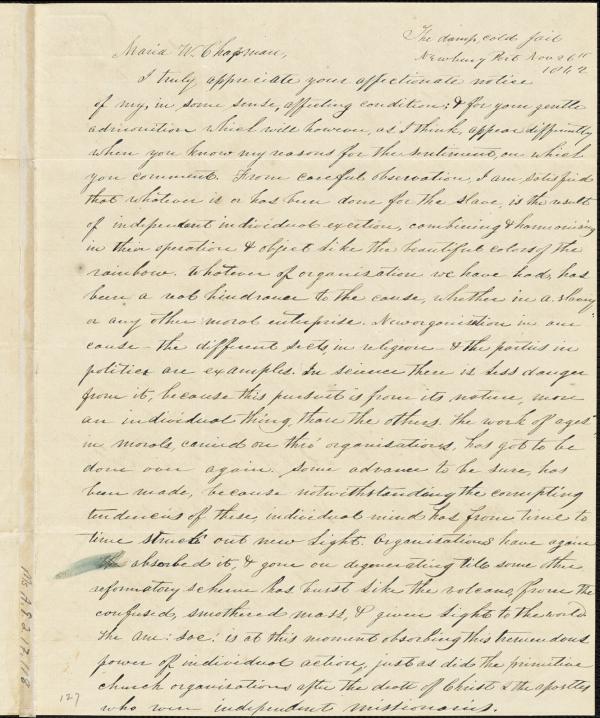 The damp, cold jail
Newbury Port Nov 26th
1842
Maria W. Chapman,
I truly appreciate your affectionate notice
of my, in some sense, affecting condition; & for your gentle
admonition which will however, as I think, appear differently
when you know my reasons for the sentiment, on which
you comment. From careful observation, I am satisfied
that whatever is or has been done for the slave, is the result
of independent individual exertion, combining & harmonising
in their operation & object like the beautiful colors of the
rainbow. Whatever of organisation we have had, has
been a real hindrance to the cause, whether in a. slavery
or any other moral enterprise. New organisation in our
cause — the different sects, in religion — & the parties in
politics are examples. In science there is less danger
from it, because this pursuit is from its nature, more
an individual thing, than the others. The work of ages
in morals, carried on thro' organisations, has got to be
done over again. Some advance to be sure, has
been made, because notwithstanding the corrupting
tendencies of these, individual mind has from time to
time struck out new light. Organisations have again
absorbed it, & gone on degenerating till some other
reformatory scheme has burst like the volcano, from the
confused, smothered mass, & given light to the world
The Am: Soc: is at this moment absorbing this tremendous
power of individual action, just as did the primitive
church organisations after the death of Christ & the apostles
who were independent missionaries.
127
Ms.A.9.2.17.118